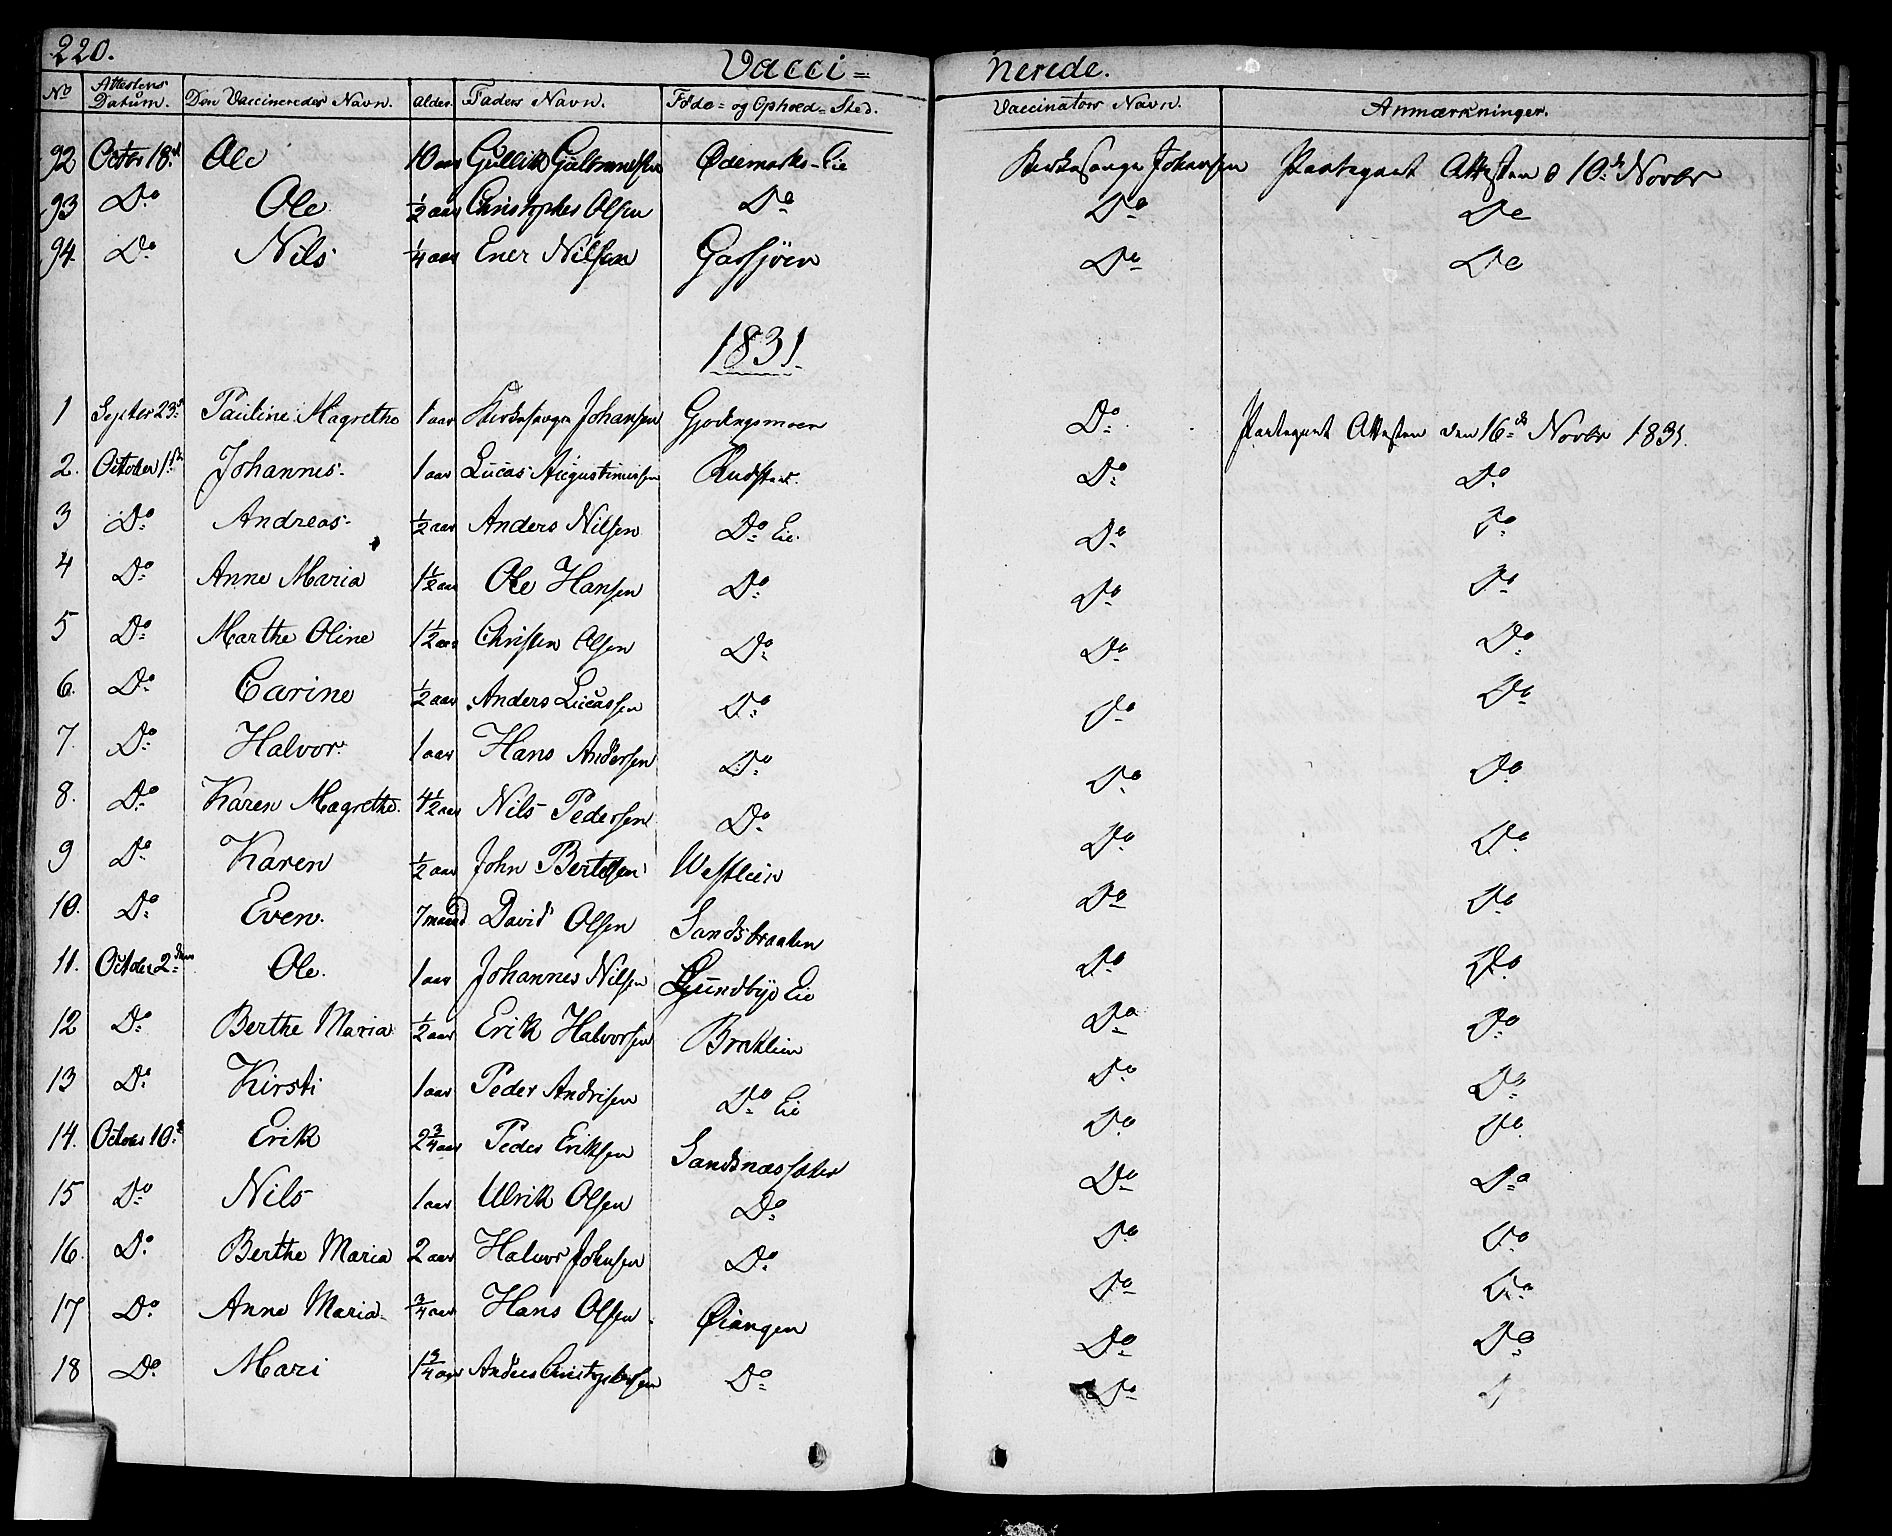 220. Vacci= nerede.
No Attestens Datum. Den Vaccineredes Navn. Alder. Faders Navn. Føde= og Ophold=Sted. Vaccinators Navn. Anmærkninger.
92 Octbr 18. Ole 10 aar Gullik Ødemarks-Eie Johansen Attesten 10. Novbr
93 Do Ole ½ aar Christopher Olsen Do Do Do
94 Do Nils ¼ aar Ener Nilsen Do Do
1831.
1 Septbr 23 Pauline Magrethe 1 aar Kirkesanger Johansen Do Attesten den 16 Novbr 1831.
2. October 1 Johannes 1 aar Lucas Augustinussen Do Do
3 Do Andreas ½ aar Anders Nilsen Do Eie Do Do
4 Do Anne Maria 1½ aar Ole Hansen Do Do Do
5 Do Marthe Oline 1½ aar Christen Olsen Do Do Do
6. Do Carine ½ aar Anders Lucassen Do Do Do
7. Do Halvor 1 aar Hans Andersen Do Do Do
8. Do Karen Magrethe 4½ aar Nils Pedersen Do Do Do
9 Do Karen ½ aar John Bertelsen Westlien Do Do
10. Do Even 7 maaned David Olsen Sandsbraaten Do Do
11. October 2 Ole. 1 aar Johannes Nilsen Lundbye Eie Do Do
12 Do Berthe Maria ½ aar Erik Halvorsen Do Do
13 Do Kirsti 1 aar Peder Andrisen Do Eie Do Do
14. Octobr 10. Erik 2¾ aar Peder Eriksen Sandsnæssæter Do Do
15 Do Nils 1 aar Ulrik Olsen Do Do Do
16. Do Berthe Maria 2 aar Halvor Johnsen Do Do Do
17 Do Anne Maria ¾ aar Hans Olsen Øiangen Do Do
18 Do Mari 1¾ aar Anders Christophersen Do Do